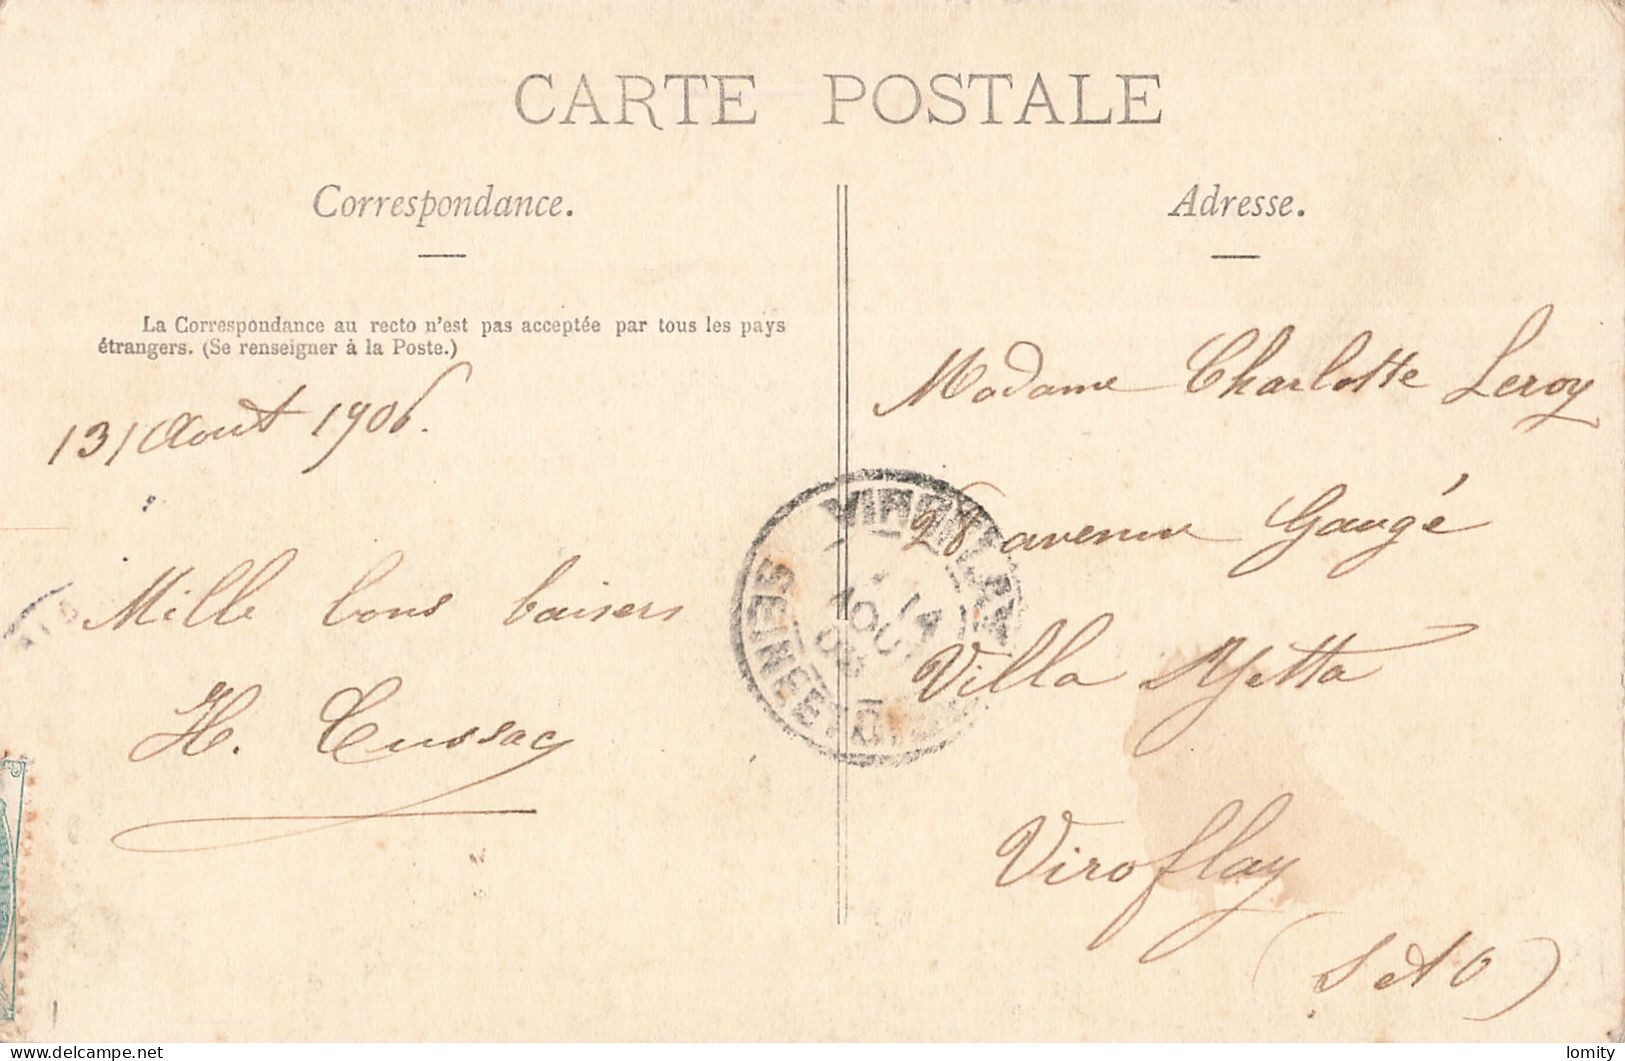 CARTE POSTALE
Correspondance.
La Correspondance au recto n'est pas acceptée par tous les pays
étrangers. (Se renseigner à la Poste.)
13 Aout 1906.
Mille bons baisers
H. Cussac
Adresse.
Madame Charlotte Leroy
28 avenue Gaugé
Villa
Viroflay
(S et O)
VIROFLAY
14
AOUT
06
SEINE ET OISE
lomity